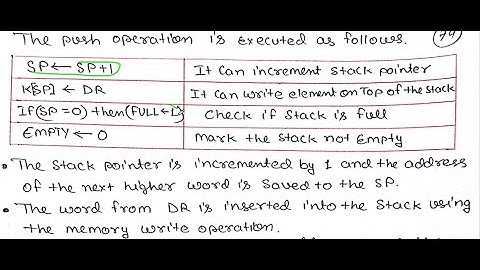 The push operation is executed as follows. 79
SP ← SP+1 It can increment stack pointer
K[SP] ← DR It can write element on Top of the stack
If(SP = 0) then (FULL ← 1) check if stack is full
EMPTY ← 0 mark the stack not Empty
• The stack pointer is incremented by 1 and the address
of the next higher word is saved to the SP.
• The word from DR is inserted into the stack using
the memory write operation.